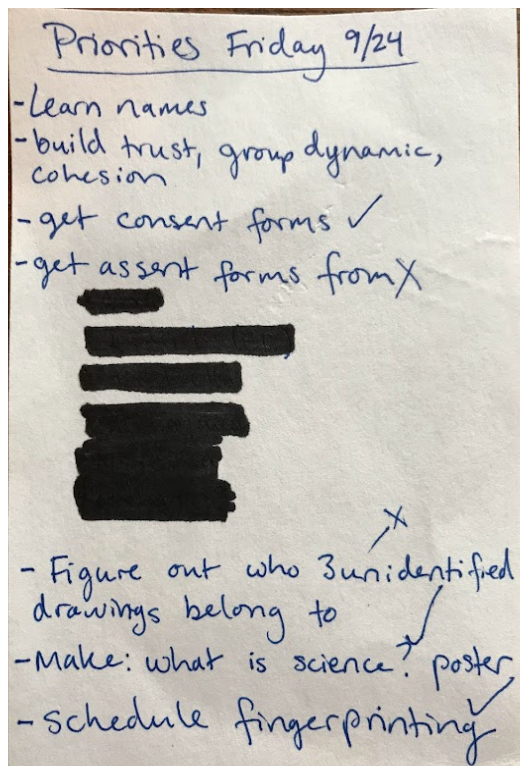 Priorities Friday 9/24
- Learn names
- build trust, group dynamic,
cohesion
- get consent forms ✓
- get assent forms from X
X
- Figure out who 3 unidentified
drawings belong to
- Make: what is science? poster ✓
- schedule fingerprinting ✓